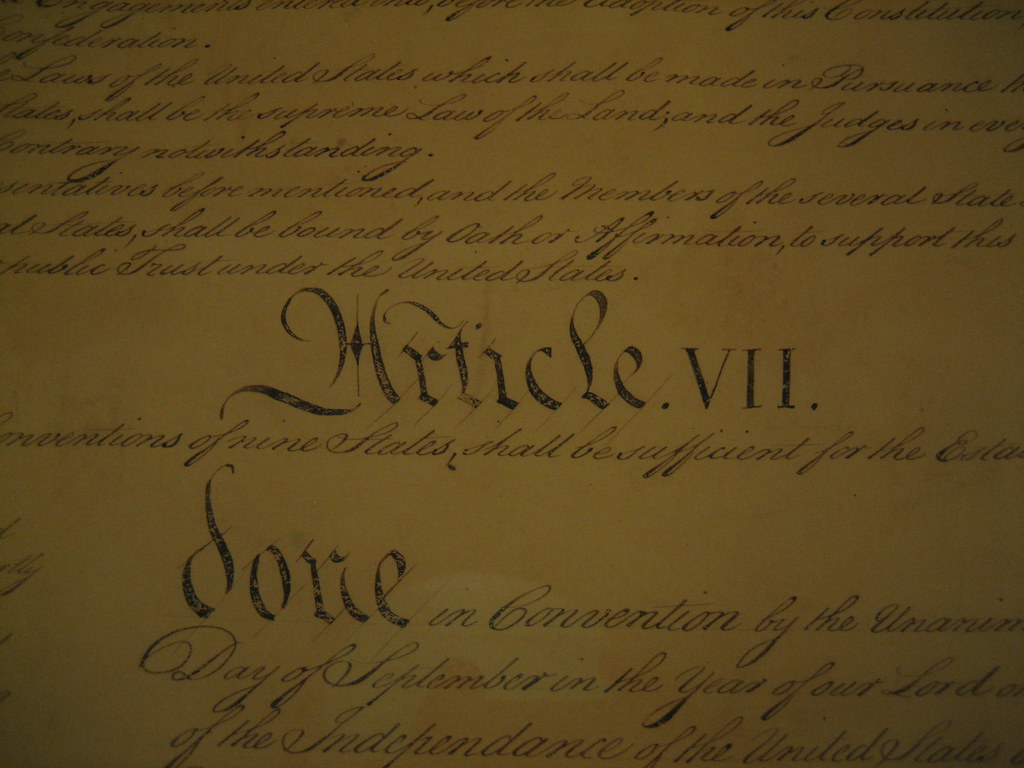 Engagements entered into, before the Adoption of this Constitution,
Confederation.
Laws of the United States which shall be made in Pursuance
States, shall be the supreme Law of the Land; and the Judges in
Contrary notwithstanding.
sentatives before mentioned, and the Members of the several State
States, shall be bound by Oath or Affirmation, to support this
public Trust under the United States.
Article. VII.
onventions of nine States, shall be sufficient for the Esta
done in Convention by the Unanim
Day of September in the Year of our Lord
of the Independance of the United States